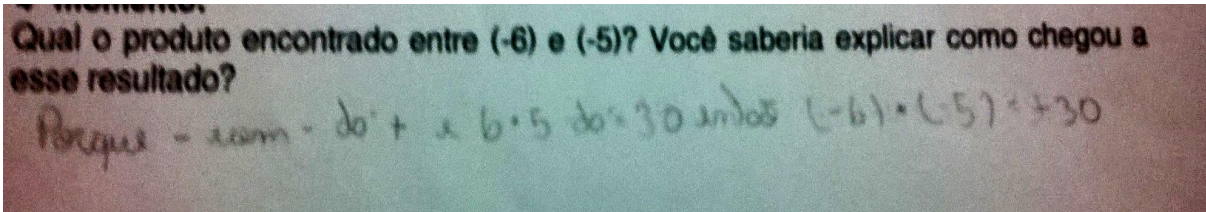 momento:
Qual o produto encontrado entre (-6) e (-5)? Você saberia explicar como chegou a
esse resultado?
Porque - com - do + e 6·5 do 30 (-6)·(-5) = +30